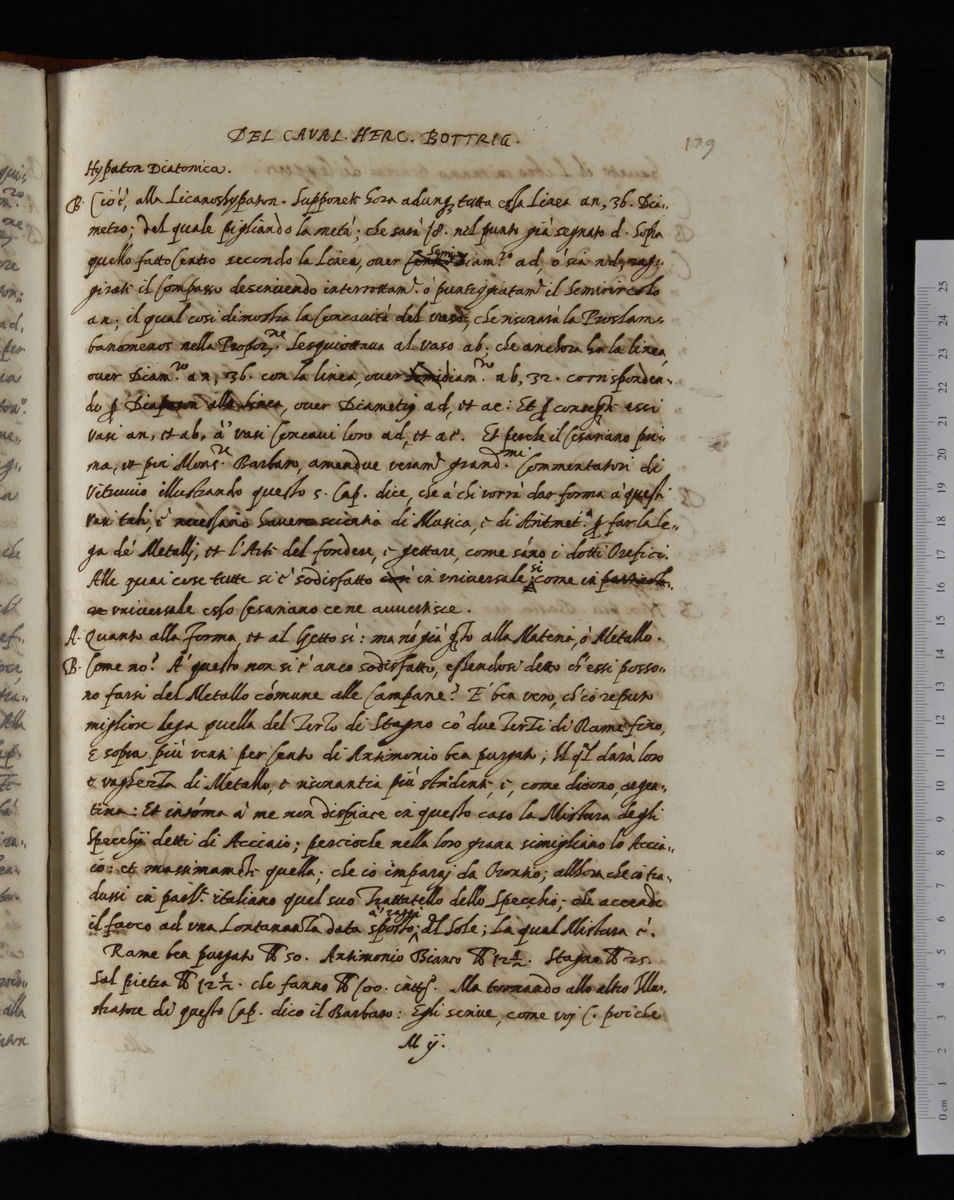 DEL CAVAL. HERC. BOTTRIG.
179
Hypaton Diatonica.
B. Cio è, alla Licanoshypaton. Supponeti hora adunq; tutta essa Linea an, 36. Dia..
metro; del quale pigliando la metà; che sarà 18. nel punto già segnato d. Sopra
quello fatto Centro secondo la Linea, over Semidiam.ro ad, o sia nd, rag..
girati il Compasso descrivendo interrottam. o punteggiatam. il Semicircolo
an; il qual cosi dimostra la Concavità del vaso, che risonara la Proslam..
banomenos nella Propor.ne Sesquiottava al vaso ab; che anchora ha la linea,
over Diam.ro an, 36. con la linea, over diam.ro ab, 32. corrisponden..
do over Diametri ad, et ae: Et essi
vasi an, et ab, à vasi Concavi loro ad, et ae. Et perche il Cesariano pri..
ma, et poi Mons.re Barbaro, amendue veram. grand.mi Commentatori di
Vitruvio illustrando questo 5. Cap. dice, che à chi vorrà dar forma à questi
vasi tali, è necessario havere scientia di Musica, è di Aritmet.a far la le..
ga de' Metalli, et l'Arte del fondere, è gettare, come sano i dotti Orefici.
Alle quai cose tutte si è sodisfatto in universale, si come in
universale esso Cesariano ce ne avvertisce.
A. Quanto alla Forma, et al Getto sì: ma nò già qto alla Materia, ò Metallo.
B. Come no? A' questo non si è anco sodisfatto, essendosi detto ch'essi posso..
no farsi del Metallo cómune alle Campane? E' ben vero, ch'io reputo
migliore lega quella del Terzo di Stagno có due Terzi di Rame fino,
E sopra più venti per Cento di Antimonio ben purgato; Il ql darà loro
e vaghezza di Metallo, è risonantia più stridente, è, come dicono, argen..
tina: Et insóma à me non dispiace in questo caso la Mistura degli
Specchij detti di Acciaio; percioche nella loro grana simigliano lo Accia..
io: et massimamente quella; che io imparai da Orontio; allhora che io tra..
dussi in parlr. italiano quel suo Trattatello dello Specchio; che accende
il fuoco ad una Lontananza data sposto à raggi del Sole; La qual Mistura è.
Rame ben purgato ℔ 50. Antimonio Bianco ℔ 12½. Stagno ℔ 25.
Sal pietra ℔ 12½. che fanno ℔ 100. Ma tornando allo altro Illus..
tratore di questo Cap. dico il Barbaro: Egli scrive, come voj C. poiche
M ij.